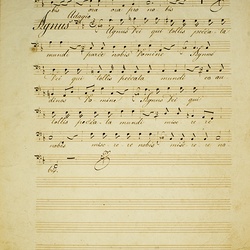 bis ora ora pro no bis
Adagio
Agnus Agnus Dei qui tollis pecca ta
mundi parce nobis Domine Agnus
Dei qui tollis peccata mundi
Domine Agnus Dei qui
tollis pecca ta mundi mise re re
nobis mise re re nobis mise re re no
bis